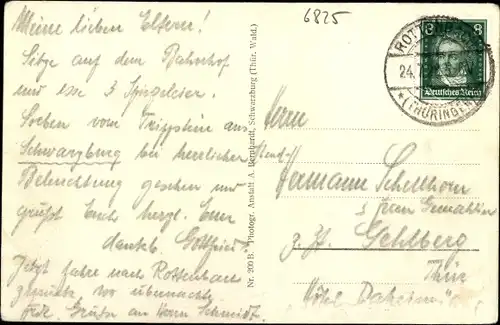 6825
Meine lieben Eltern!
Sitze auf dem Bahnhof
und esse 3 Spiegeleier.
Soeben vom Trippstein aus
Schwarzburg bei herrlicher Abend-
Beleuchtung gesehen und
grüßt Euch herzl. Euer
dankb. Gottfried
Jetzt fahre nach Rottenbach
zurück wo übernachte
Herzl. Grüße an Herrn Schmidt.
Nr. 200 B. Photogr. Anstalt A. Bernhardt, Schwarzburg (Thür. Wald.)
8 8
Deutsches Reich
ROTT
24.
* (THÜRINGEN)
Herrn
Hermann Schellhorn
Frau Gemahlin
z. Zt. Gehlberg
Thür.
Hotel Daheim